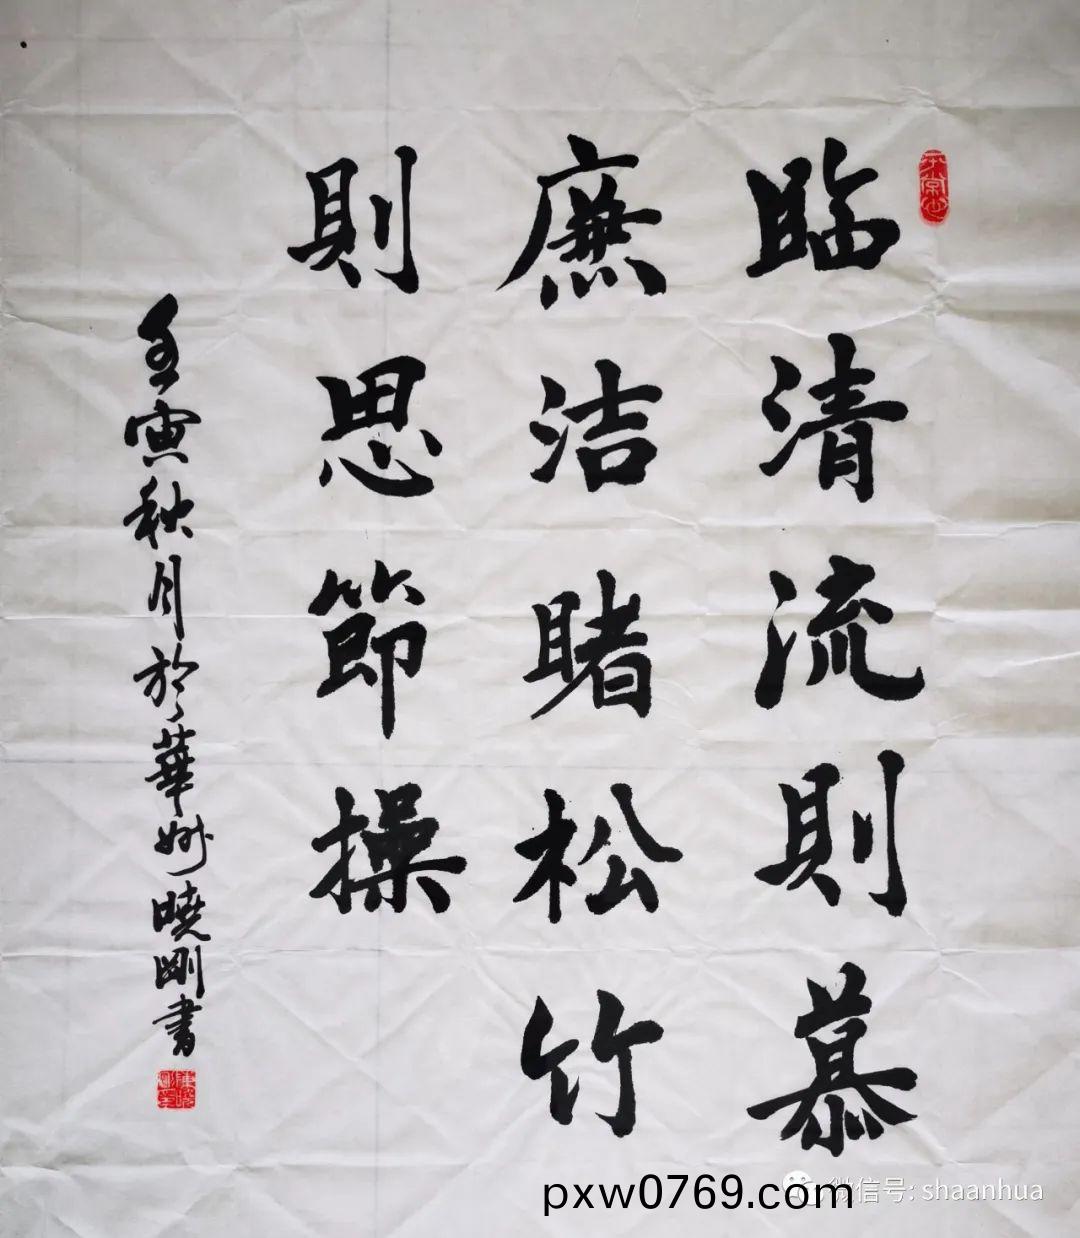 臨清流則慕
廉洁睹松竹
則思節操
壬寅秋月於華州曉剛書
微信号: shaanhua
pxw0769.com